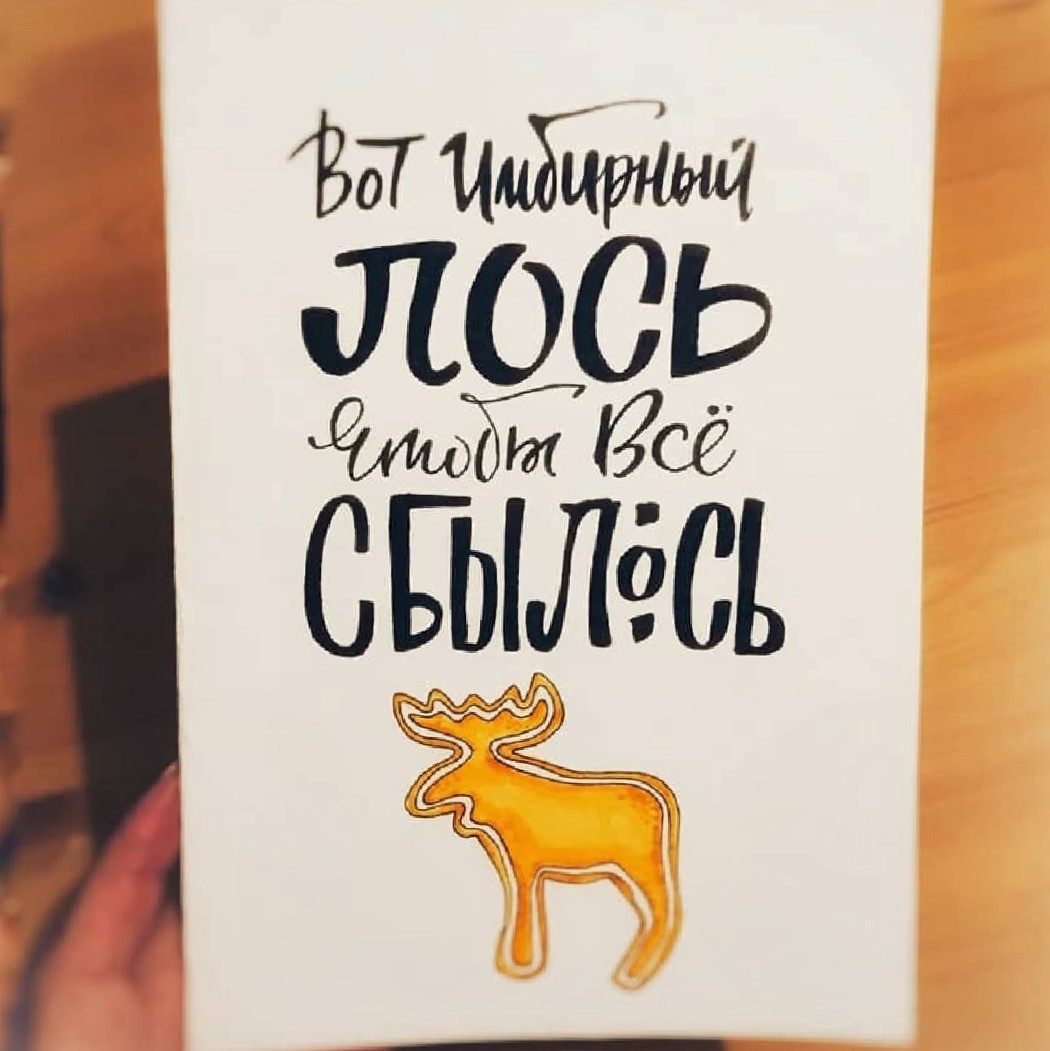 Вот Имбирный
ЛОСЬ
Чтобы Всё
СБЫЛОСЬ